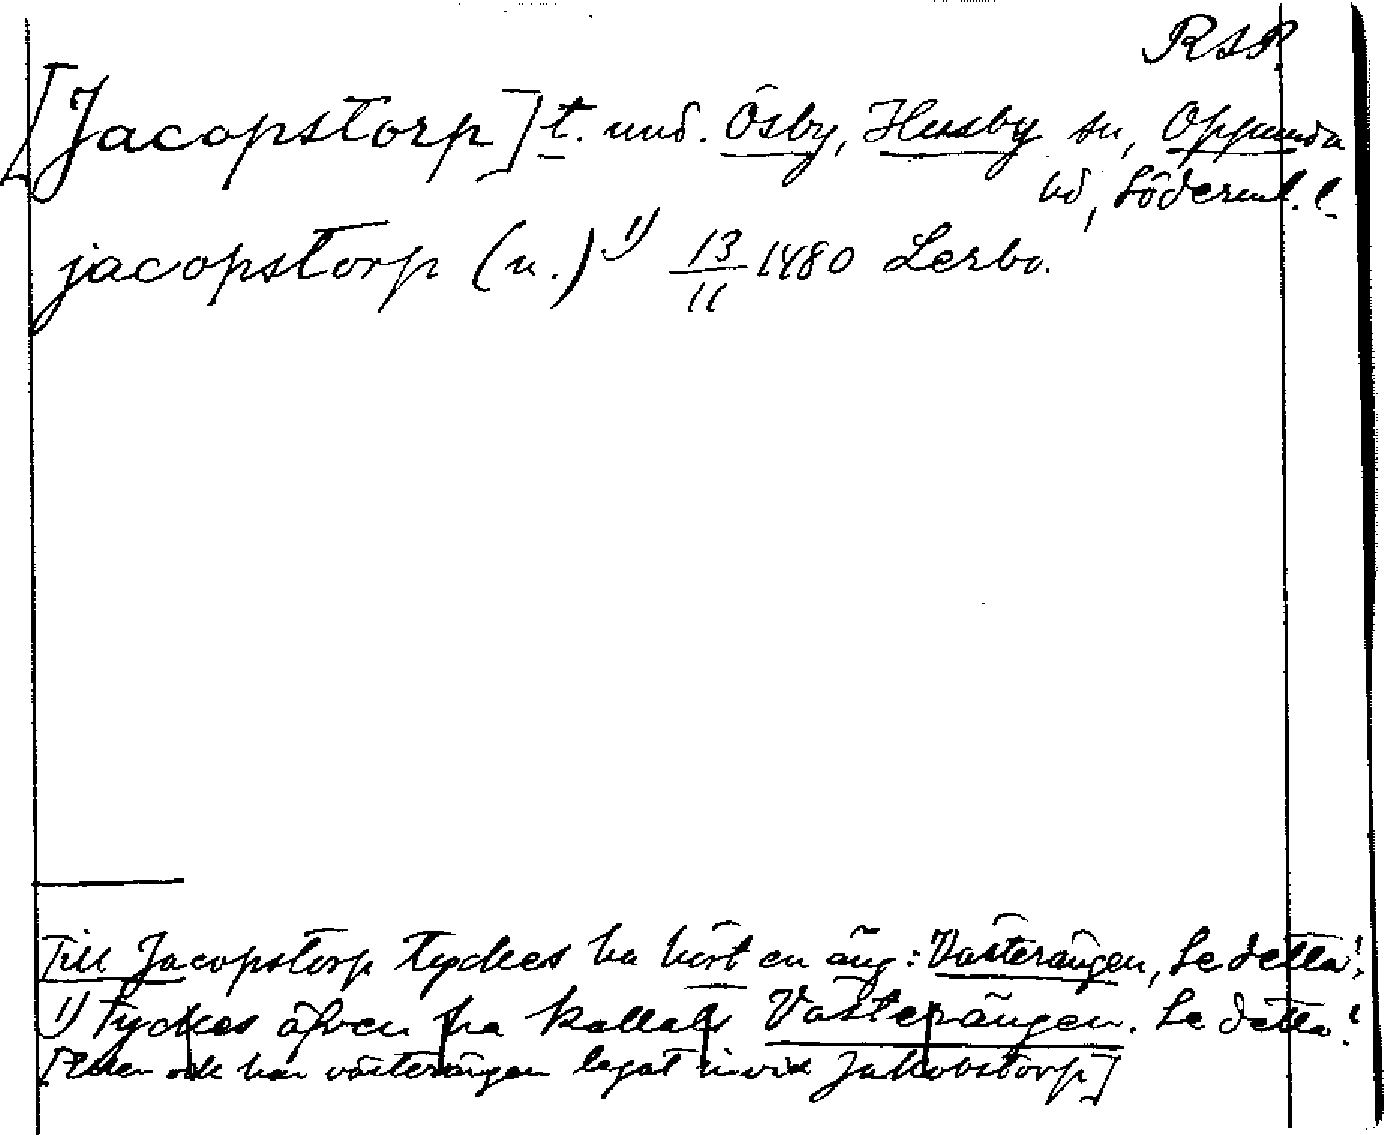 RAP.
[Jacopstorp] t. und. Ösby, Husby sn, Oppunda
hd, Söderml. l.
jacopstorp (u.) 1) 13/11 1480 Lerbo.
Till Jacopstorp tyckes ha hört en äng: Västerängen, Se detta!
1) tyckes äfven ha kallats Västerängen. Se detta!
[Eller ock har västerängen legat invid Jakobstorp]